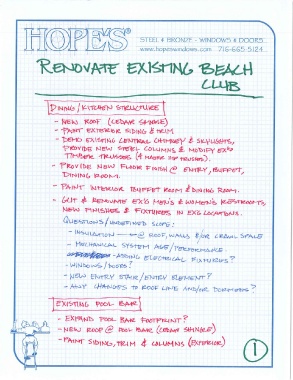 HOPE'S®
STEEL & BRONZE - WINDOWS & DOORS
www.hopeswindows.com 716-665-5124
RENOVATE EXISTING BEACH
CLUB
DINING/KITCHEN STRUCTURE
- NEW ROOF (CEDAR SHINGLE)
- PAINT EXTERIOR SIDING & TRIM
- DEMO EXISTING CENTRAL CHIMNEY & SKYLIGHTS,
PROVIDE NEW STEEL COLUMNS & MODIFY EX'G
TIMBER TRUSSES. (4 MAJOR TRUSSES).
- PROVIDE NEW FLOOR FINISH @ ENTRY, BUFFET,
DINING ROOM.
- PAINT INTERIOR BUFFET ROOM & DINING ROOM.
- GUT & RENOVATE EX'G MEN'S & WOMEN'S RESTROOMS
NEW FINISHES & FIXTURES IN EX'G LOCATIONS.
QUESTIONS/UNDEFINED SCOPE:
- INSULATION → @ ROOF, WALLS &/OR CRAWL SPACE
- MECHANICAL SYSTEM AGE/PERFORMANCE
- ADDING ELECTRICAL FIXTURES?
- WINDOWS/DOORS?
- NEW ENTRY STAIR/ENTRY ELEMENT?
- ANY CHANGES TO ROOF LINE AND/OR DORMERS?
EXISTING POOL BAR
- EXPAND POOL BAR FOOTPRINT?
- NEW ROOF @ POOL BAR (CEDAR SHINGLE)
- PAINT SIDING, TRIM & COLUMNS (EXTERIOR)
1